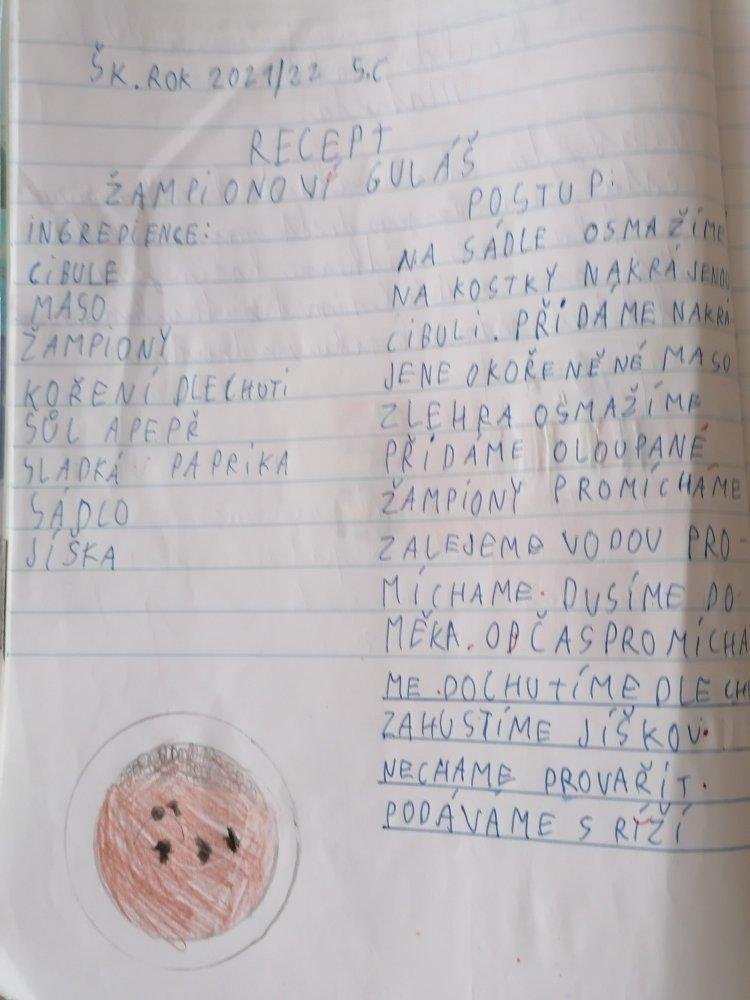 ŠK. ROK 2021/22 5.C
RECEPT
ŽAMPIONOVÍ GULÁŠ
INGREDIENCE:
CIBULE
MASO
ŽAMPIONY
KOŘENÍ DLECHUTI
SŮL A PEPŘ
SLADKÁ PAPRIKA
SÁDLO
JÍŠKA
POSTUP:
NA SÁDLE OSMAŽÍME
NA KOSTKY NAKRÁJENOU
CIBULI. PŘIDÁME NAKRÁ-
JENE OKOŘENĚNÉ MASO
ZLEHRA OSMAŽÍME
PŘIDÁME OLOUPANÉ
ŽAMPIONY PROMÍCHÁME
ZALEJEME VODOU PRO-
MÍCHAME. DUSÍME DO
MĚKA. ODČAS PROMÍCHA
ME. DOCHUTÍME DLE CHU
ZAHUSTÍME JÍŠKOU.
NECHÁME PROVAŘIT.
PODÁVÁME S RÍŽÍ